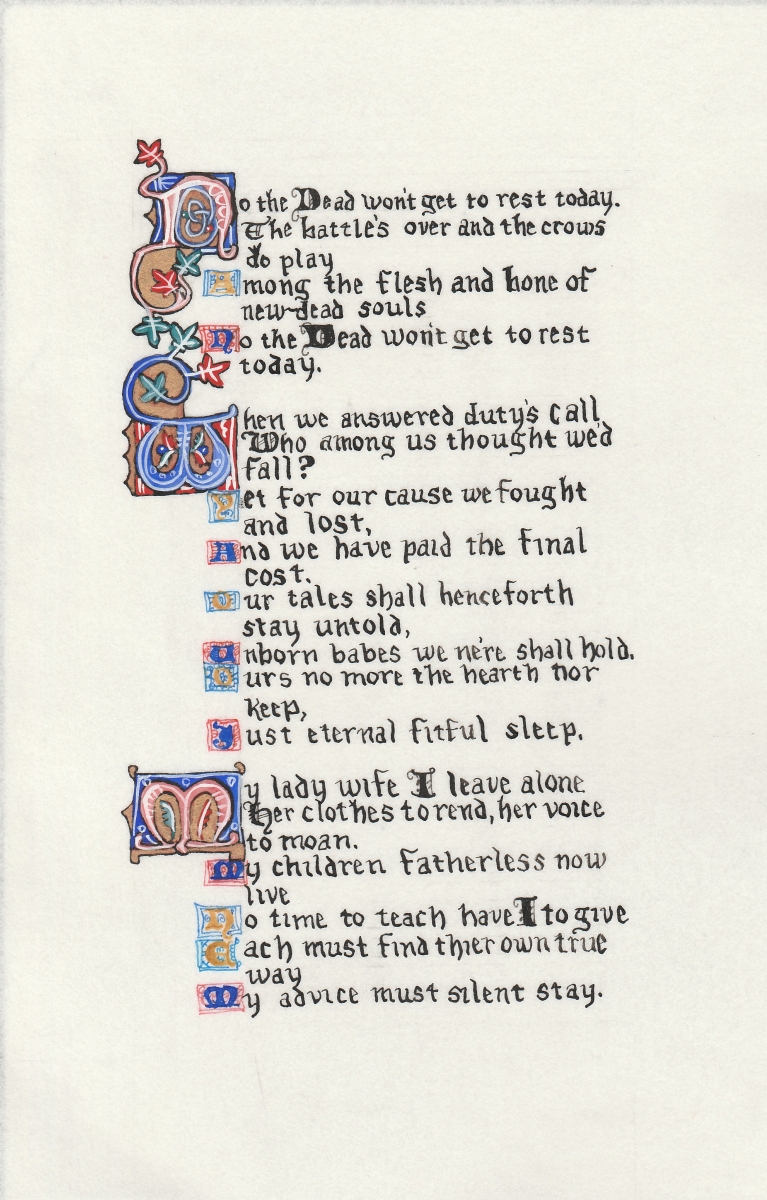 No the Dead won't get to rest today.
The battle's over and the crows
do play
Among the flesh and bone of
new-dead souls
No the Dead won't get to rest
today.
When we answered duty's call
Who among us thought we'd
fall?
Yet for our cause we fought
and lost,
And we have paid the final
cost.
Our tales shall henceforth
stay untold,
Unborn babes we ne're shall hold.
Ours no more the hearth nor
keep,
Just eternal fitful sleep.
My lady wife I leave alone
Her clothes to rend, her voice
to moan.
My children fatherless now
live
No time to teach have I to give
Each must find thier own true
way
My advice must silent stay.